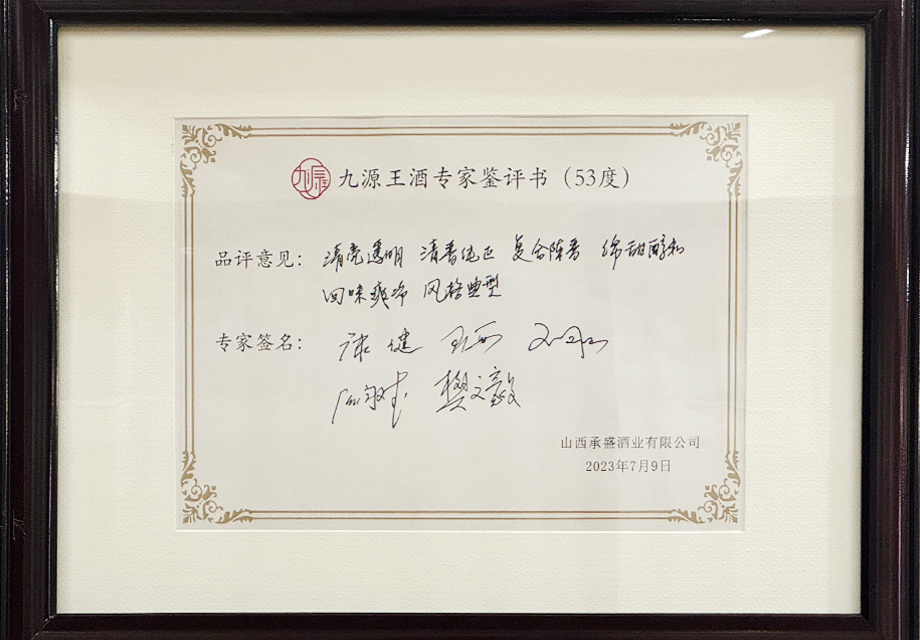 九源王酒专家鉴评书（53度）
品评意见：清亮透明 清香纯正 复合陈香 绵甜醇和
回味爽净 风格典型
专家签名：康健
樊文毅
山西承盛酒业有限公司
2023年7月9日